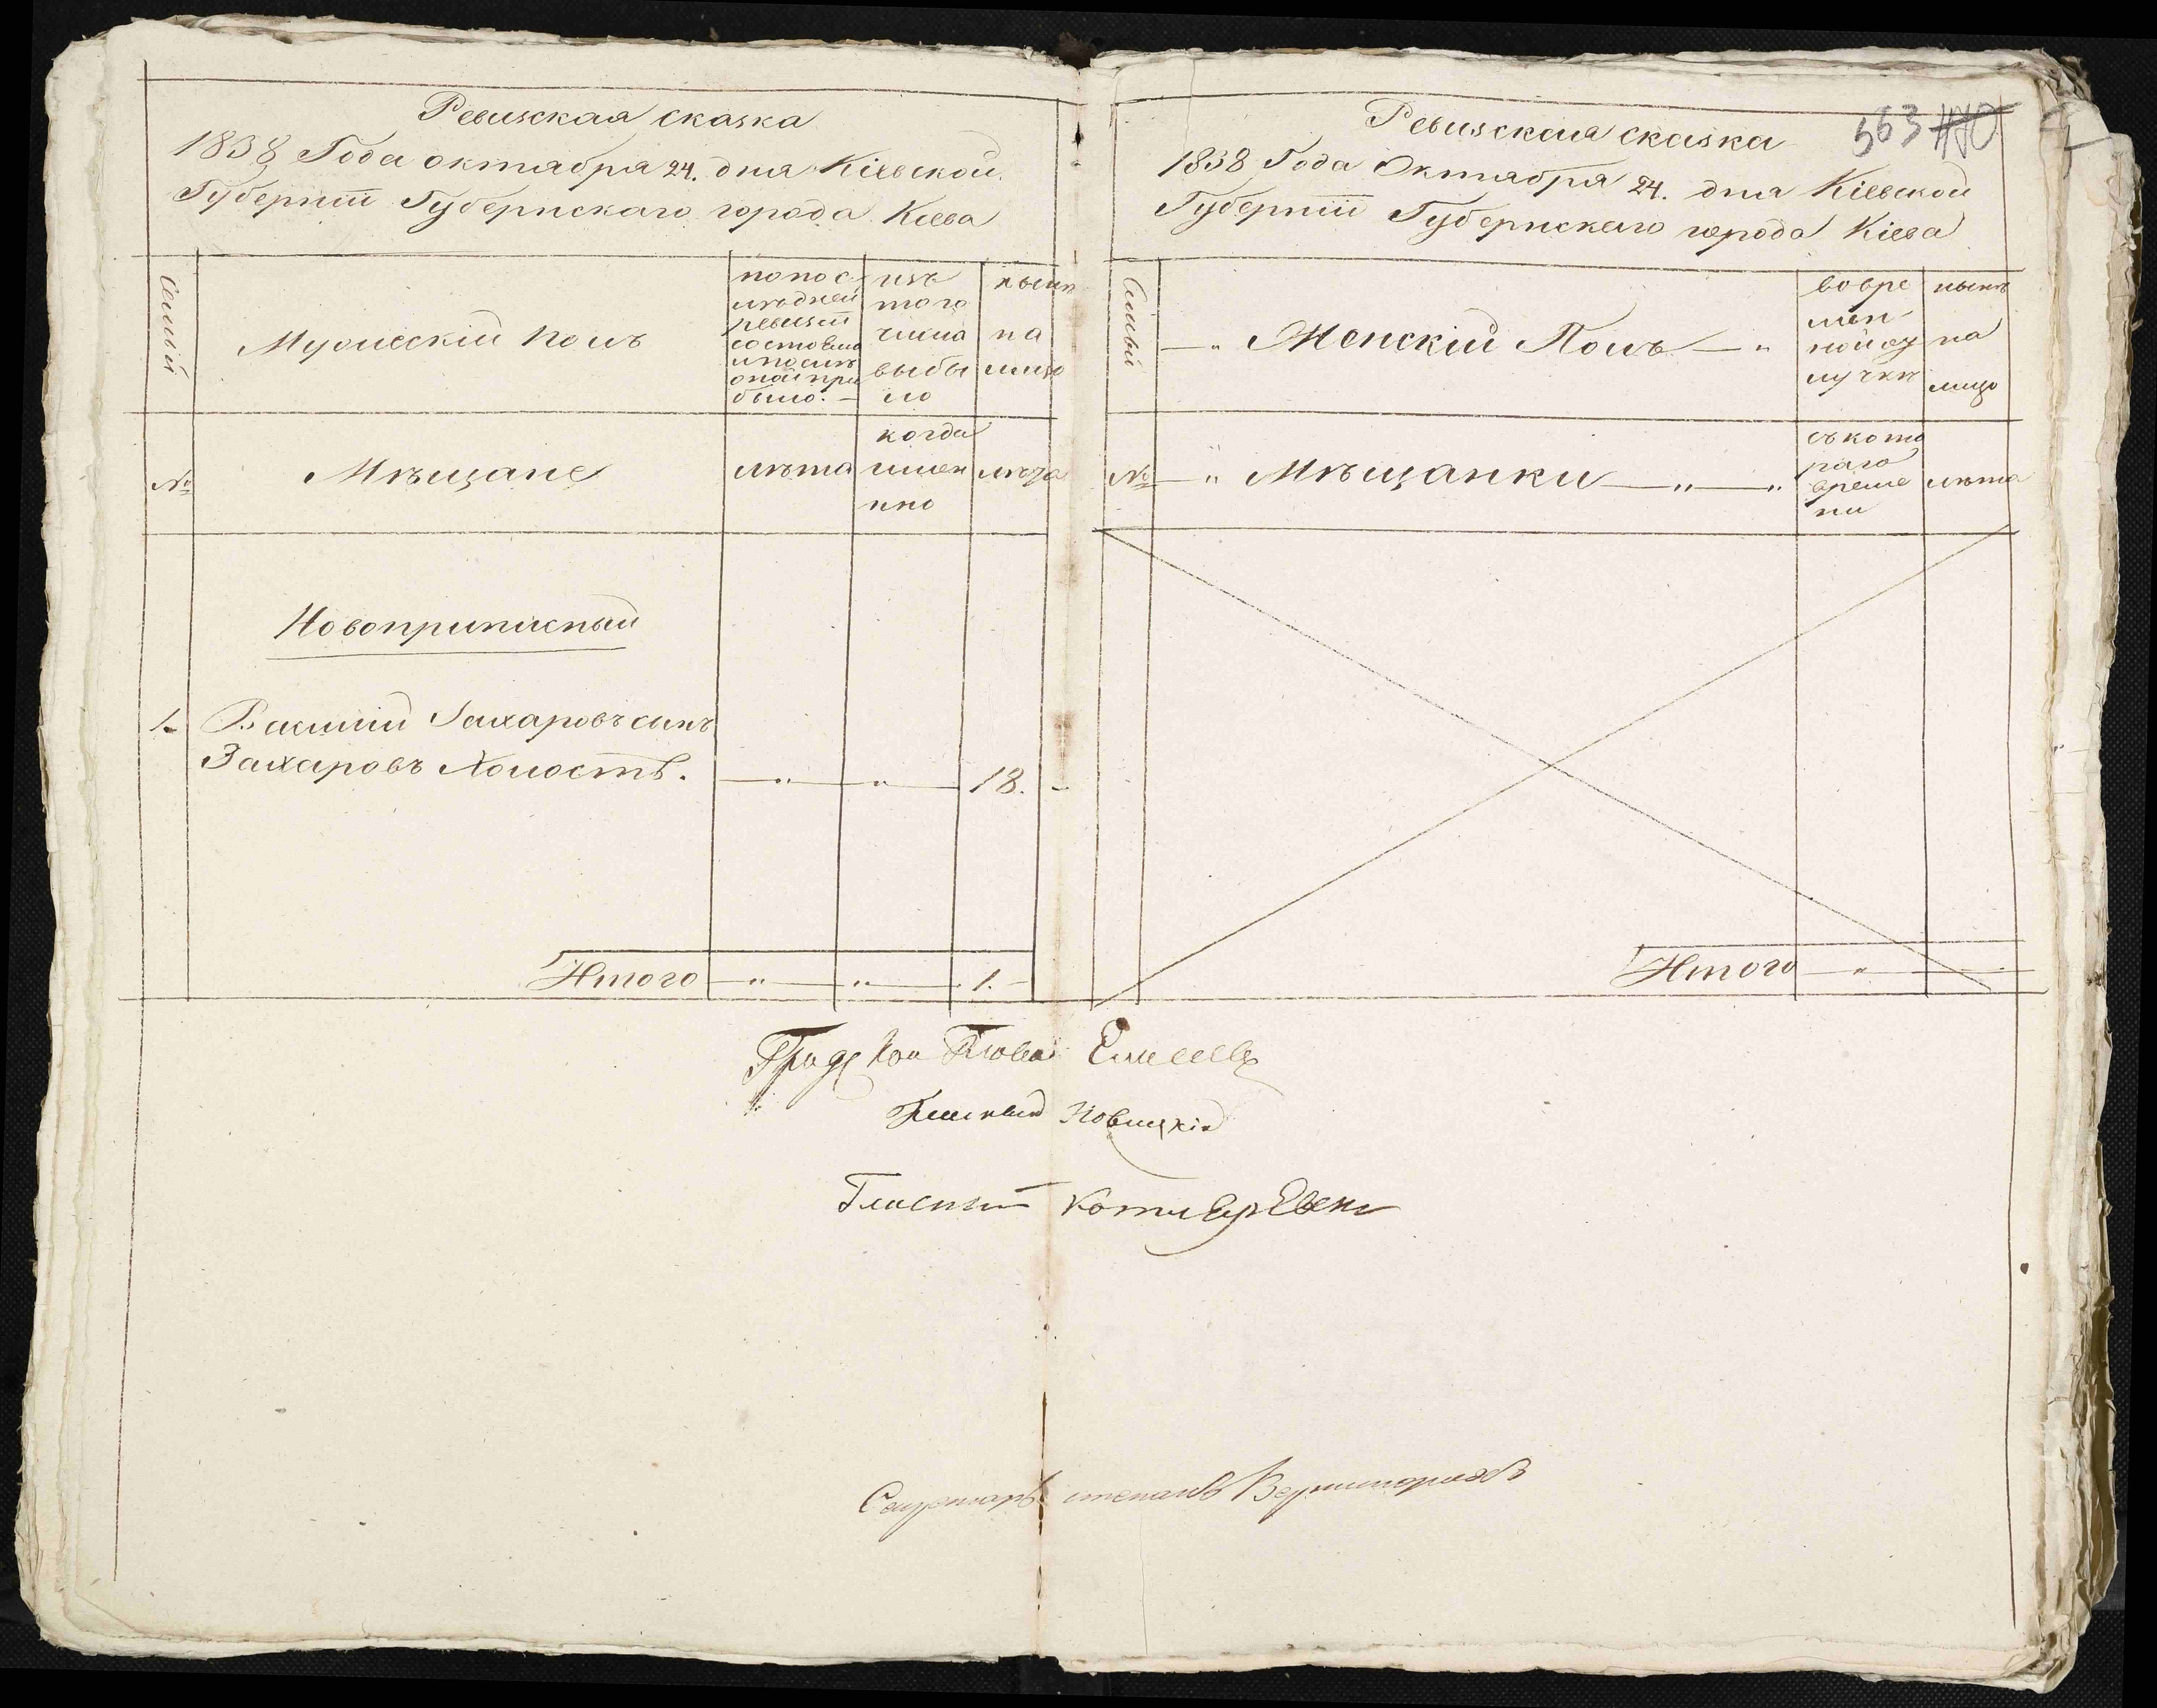 Ревизская сказка
1838 Года октября 24. дня Кіевской
Губерніи Губернскаго города Кіева
Семьи
Мужескій полъ
попос
лѣдней
ревизіи
состояло
ипослѣ
оной при
было. —
изъ
того
числа
выбы
ло
нынѣ
на
лицо
№
Мѣщане
лѣта
когда
имен
нно
лѣта
Новоприписный
1. Василій Захаровъ сынъ
Захаровъ Холостъ. — " — " — 18. —
Итого — " — " — 1. —
563 440
Ревизская сказка
1838 Года Октября 24. дня Кіевской
Губерніи Губернскаго города Кіева
Семьи
— " Женскій Полъ — "
вовре
мен
ной от
лучкѣ
нынѣ
на
лицо
№ — " Мѣщанки — " — "
съ кото
раго
време
ни
лѣта
Итого — " —
Градской Глова Елисеевъ
Гласный Новицкій
Гласный Котляревски
Секретарь